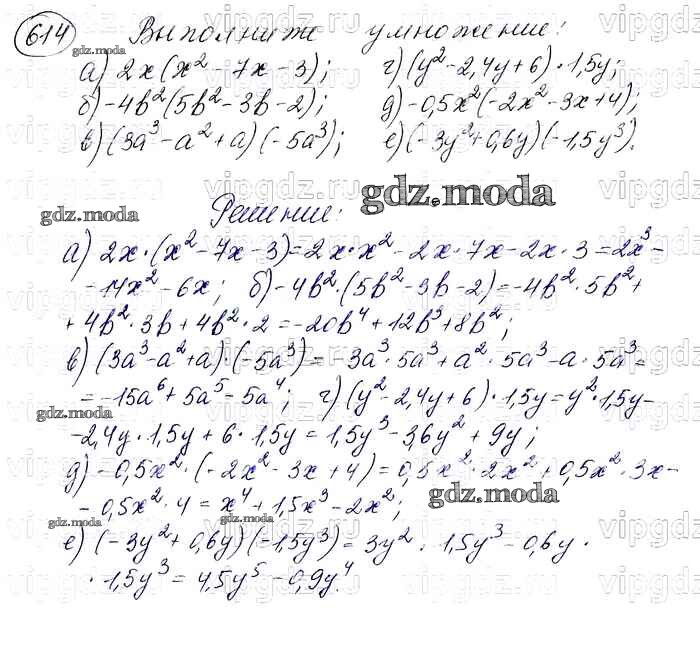 614 Выполните умножение:
а) 2x(x² - 7x - 3); г) (y² - 2,4y + 6) · 1,5y;
б) -4b²(5b² - 3b - 2); д) -0,5x²(-2x² - 3x + 4);
в) (3a³ - a² + a)(-5a³); е) (-3y² + 0,6y)(-1,5y³).
Решение:
а) 2x · (x² - 7x - 3) = 2x · x² - 2x · 7x - 2x · 3 = 2x³ -
- 14x² - 6x; б) -4b² · (5b² - 3b - 2) = -4b² · 5b² +
+ 4b² · 3b + 4b² · 2 = -20b⁴ + 12b³ + 8b²;
в) (3a³ - a² + a) · (-5a³) = -3a³ · 5a³ + a² · 5a³ - a · 5a³ =
= -15a⁶ + 5a⁵ - 5a⁴; г) (y² - 2,4y + 6) · 1,5y = y² · 1,5y -
- 2,4y · 1,5y + 6 · 1,5y = 1,5y³ - 3,6y² + 9y;
д) -0,5x² · (-2x² - 3x + 4) = 0,5x² · 2x² + 0,5x² · 3x -
- 0,5x² · 4 = x⁴ + 1,5x³ - 2x²;
е) (-3y² + 0,6y)(-1,5y³) = 3y² · 1,5y³ - 0,6y ·
· 1,5y³ = 4,5y⁵ - 0,9y⁴.
gdz.moda
vipgdz.ru